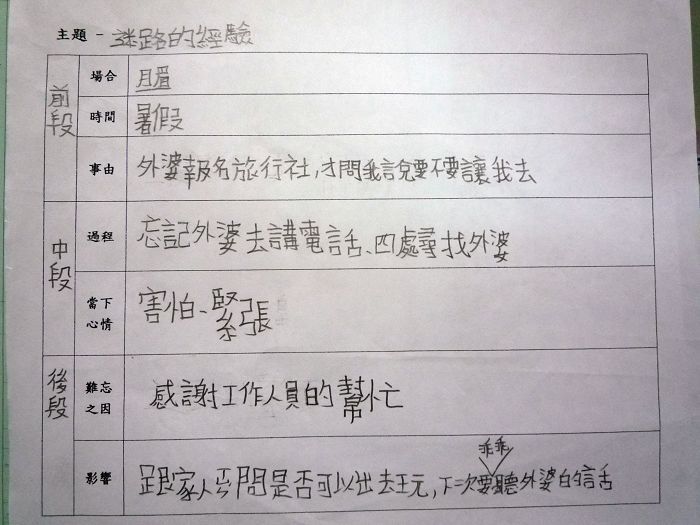 主題 - 迷路的經驗
前段
場合 月眉
時間 暑假
事由 外婆報名旅行社,才問我說要不要讓我去
中段
過程 忘記外婆去講電話、四處尋找外婆
當下心情 害怕、緊張
後段
難忘之因 感謝工作人員的幫忙
乖乖
影響 跟家人問是否可以出去玩,下次要聽外婆的話